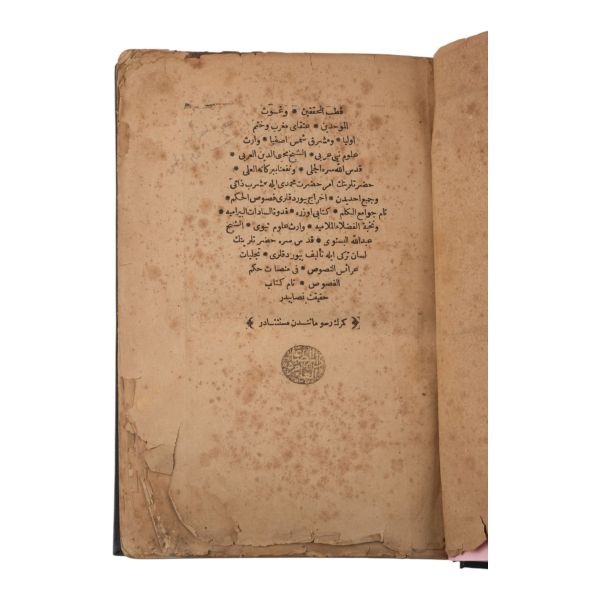 قطب المحققين * وغوث
الموحدين * عنقاى مغرب وختم
اوليا * ومشرق شمس اصفيا * وارث
علوم نبى عربى * الشيخ محيى الدين العربى *
قدس الله سره الجلى * ونفعنا ببركاته العلى *
حضرتلرينك امر حضرت محمدى ايله مشرب ذاتى
وجميع احديدن * اخراج بيوردقلرى فصوص الحكم *
نام جوامع الكلم * كتابى اوزره * قدوة السادات البيراميه *
ونخبة الفضلاء الملاميه * وارث علوم نبوى * الشيخ
عبدالله البسنوى * قدس سره حضرتلرينك
لسان تركى ايله تأليف بيوردقلرى * تجليات
عرائس النصوص * فى منصات حكم
الفصوص * نام كتاب
حقيقت نصابيدر
﴿ كمرك رسوماتندن مستثنادر ﴾